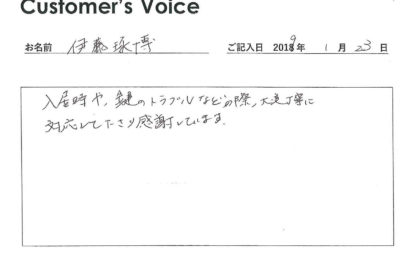 Customer's Voice
お名前 伊藤琢博 ご記入日 2019年 1月23日
入居時や、鍵のトラブルなどの際、大変丁寧に
対応して下さり感謝しています。